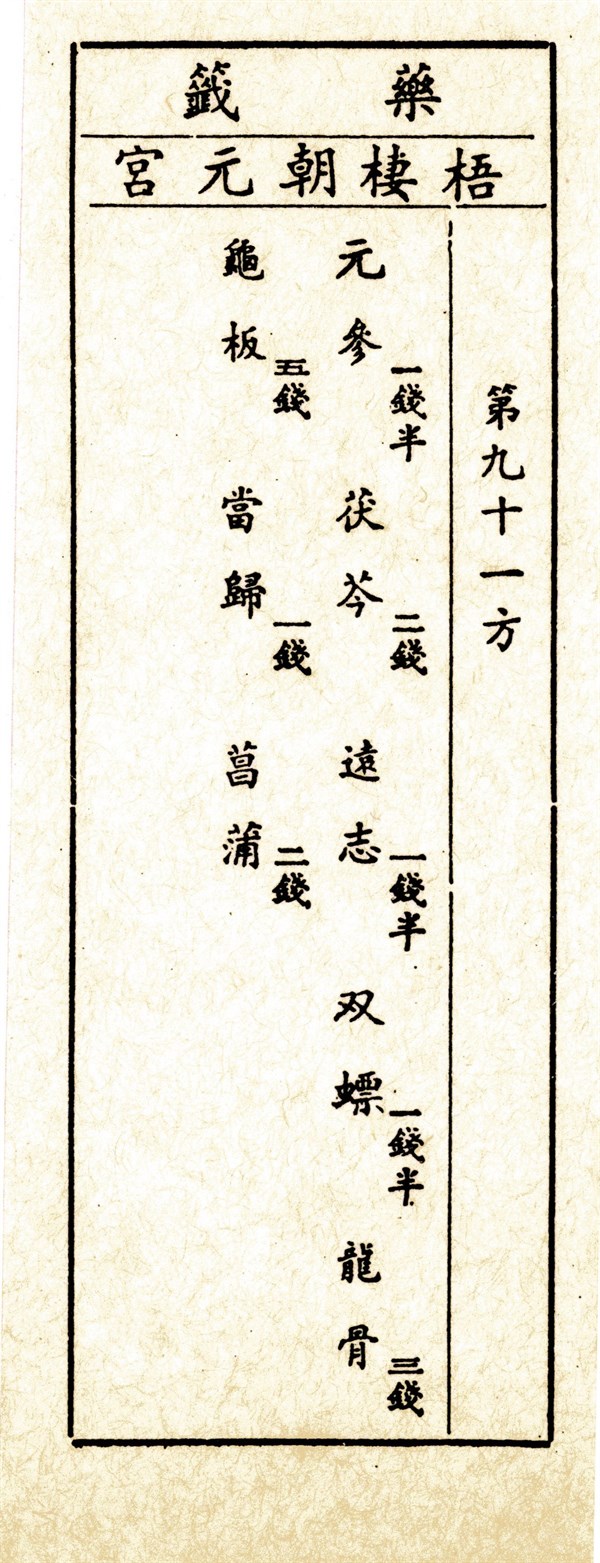 藥籤
梧棲朝元宮
第九十一方
元參一錢半 茯苓二錢 遠志一錢半 双螵一錢半 龍骨三錢
龜板五錢 當歸一錢 菖蒲二錢